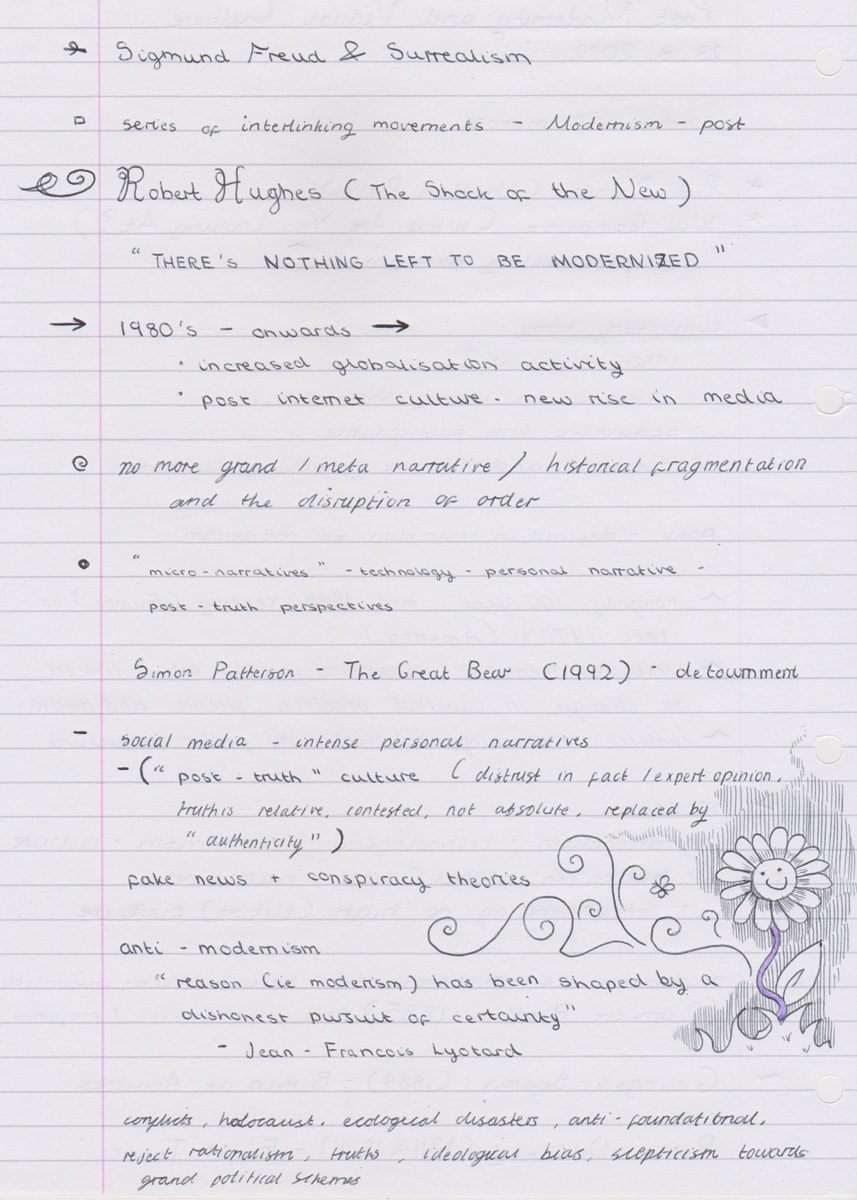 Sigmund Freud & Surrealism
series of interlinking movements - Modernism - post
Robert Hughes (The Shock of the New)
" THERE'S NOTHING LEFT TO BE MODERNIZED "
→ 1980's - onwards →
· increased globalisation activity
· post internet culture - new rise in media
no more grand / meta narrative / historical fragmentation
and the disruption of order
" micro-narratives " - technology - personal narrative -
post - truth perspectives
Simon Patterson - The Great Bear (1992) - detournment
- social media - intense personal narratives
- (" post - truth " culture ( distrust in fact / expert opinion,
truth is relative, contested, not absolute, replaced by
" authenticity " )
fake news + conspiracy theories
anti - modernism
" reason (ie moderism) has been shaped by a
dishonest pursuit of certainty"
- Jean - Francois Lyotard
conflicts, holocaust, ecological disasters, anti-foundational,
reject rationalism, truths, ideological bias, scepticism towards
grand political schemes